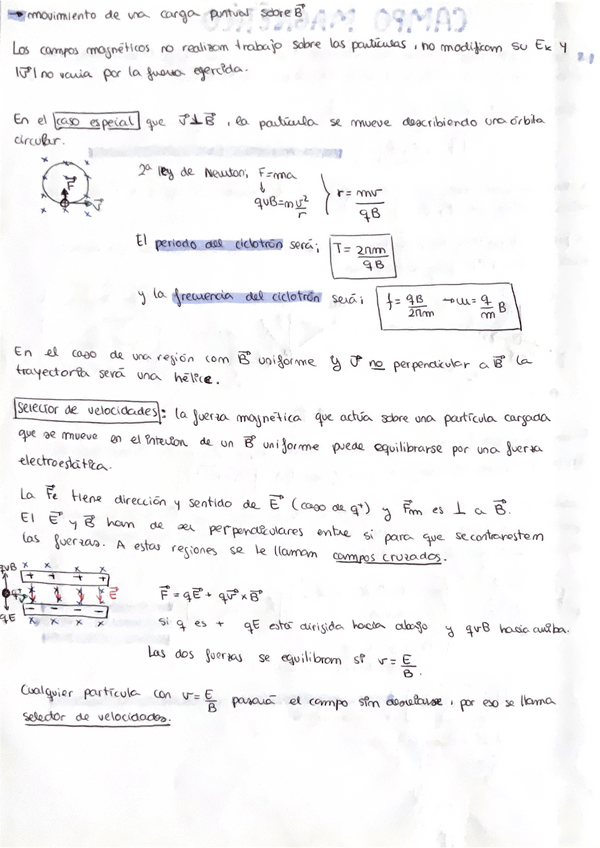 → movimiento de una carga puntual sobre B⃗
Los campos magnéticos no realizan trabajo sobre las partículas, no modifican su Eₖ y
|v⃗| no varia por la fuerza ejercida.
En el caso especial que v⃗⊥B⃗, la partícula se mueve describiendo una órbita
circular.
x x x
x F⃗ x
x x v⃗
2ª ley de Newton; F=ma
↓
qvB=m v²/r } r= mv/qB
El periodo del ciclotrón será; T= 2πm/qB
y la frecuencia del ciclotrón será; f= qB/2πm → ω= q/m B
En el caso de una región con B⃗ uniforme y v⃗ no perpendicular a B⃗ la
trayectoria será una hélice.
Selector de velocidades: la fuerza magnética que actúa sobre una partícula cargada
que se mueve en el interior de un B⃗ uniforme puede equilibrarse por una fuerza
electroestática.
La F⃗e tiene dirección y sentido de E⃗ (caso de q⁺) y F⃗m es ⊥ a B⃗.
El E⃗ y B⃗ han de ser perpendiculares entre si para que se contrarresten
las fuerzas. A estas regiones se le llaman campos cruzados.
qvB x x x x
+ + + +
q x x x x E⃗
− − − −
qE x x x x
F⃗ = qE⃗ + qv⃗ x B⃗
Si q es + qE está dirigida hacia abajo y qvB hacia arriba.
Las dos fuerzas se equilibran si v= E/B.
Cualquier partícula con v= E/B pasará el campo sin desviarse, por eso se llama
selector de velocidades.